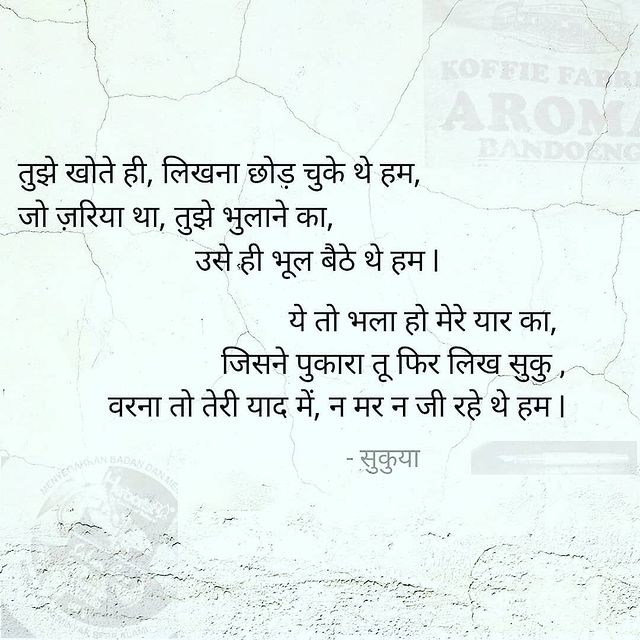 KOFFIE FABRI
AROMA
BANDOENG
तुझे खोते ही, लिखना छोड़ चुके थे हम,
जो ज़रिया था, तुझे भुलाने का,
उसे ही भूल बैठे थे हम।
ये तो भला हो मेरे यार का,
जिसने पुकारा तू फिर लिख सुकु ,
वरना तो तेरी याद में, न मर न जी रहे थे हम।
- सुकुया
MENJEGARKAN BADAN DAN